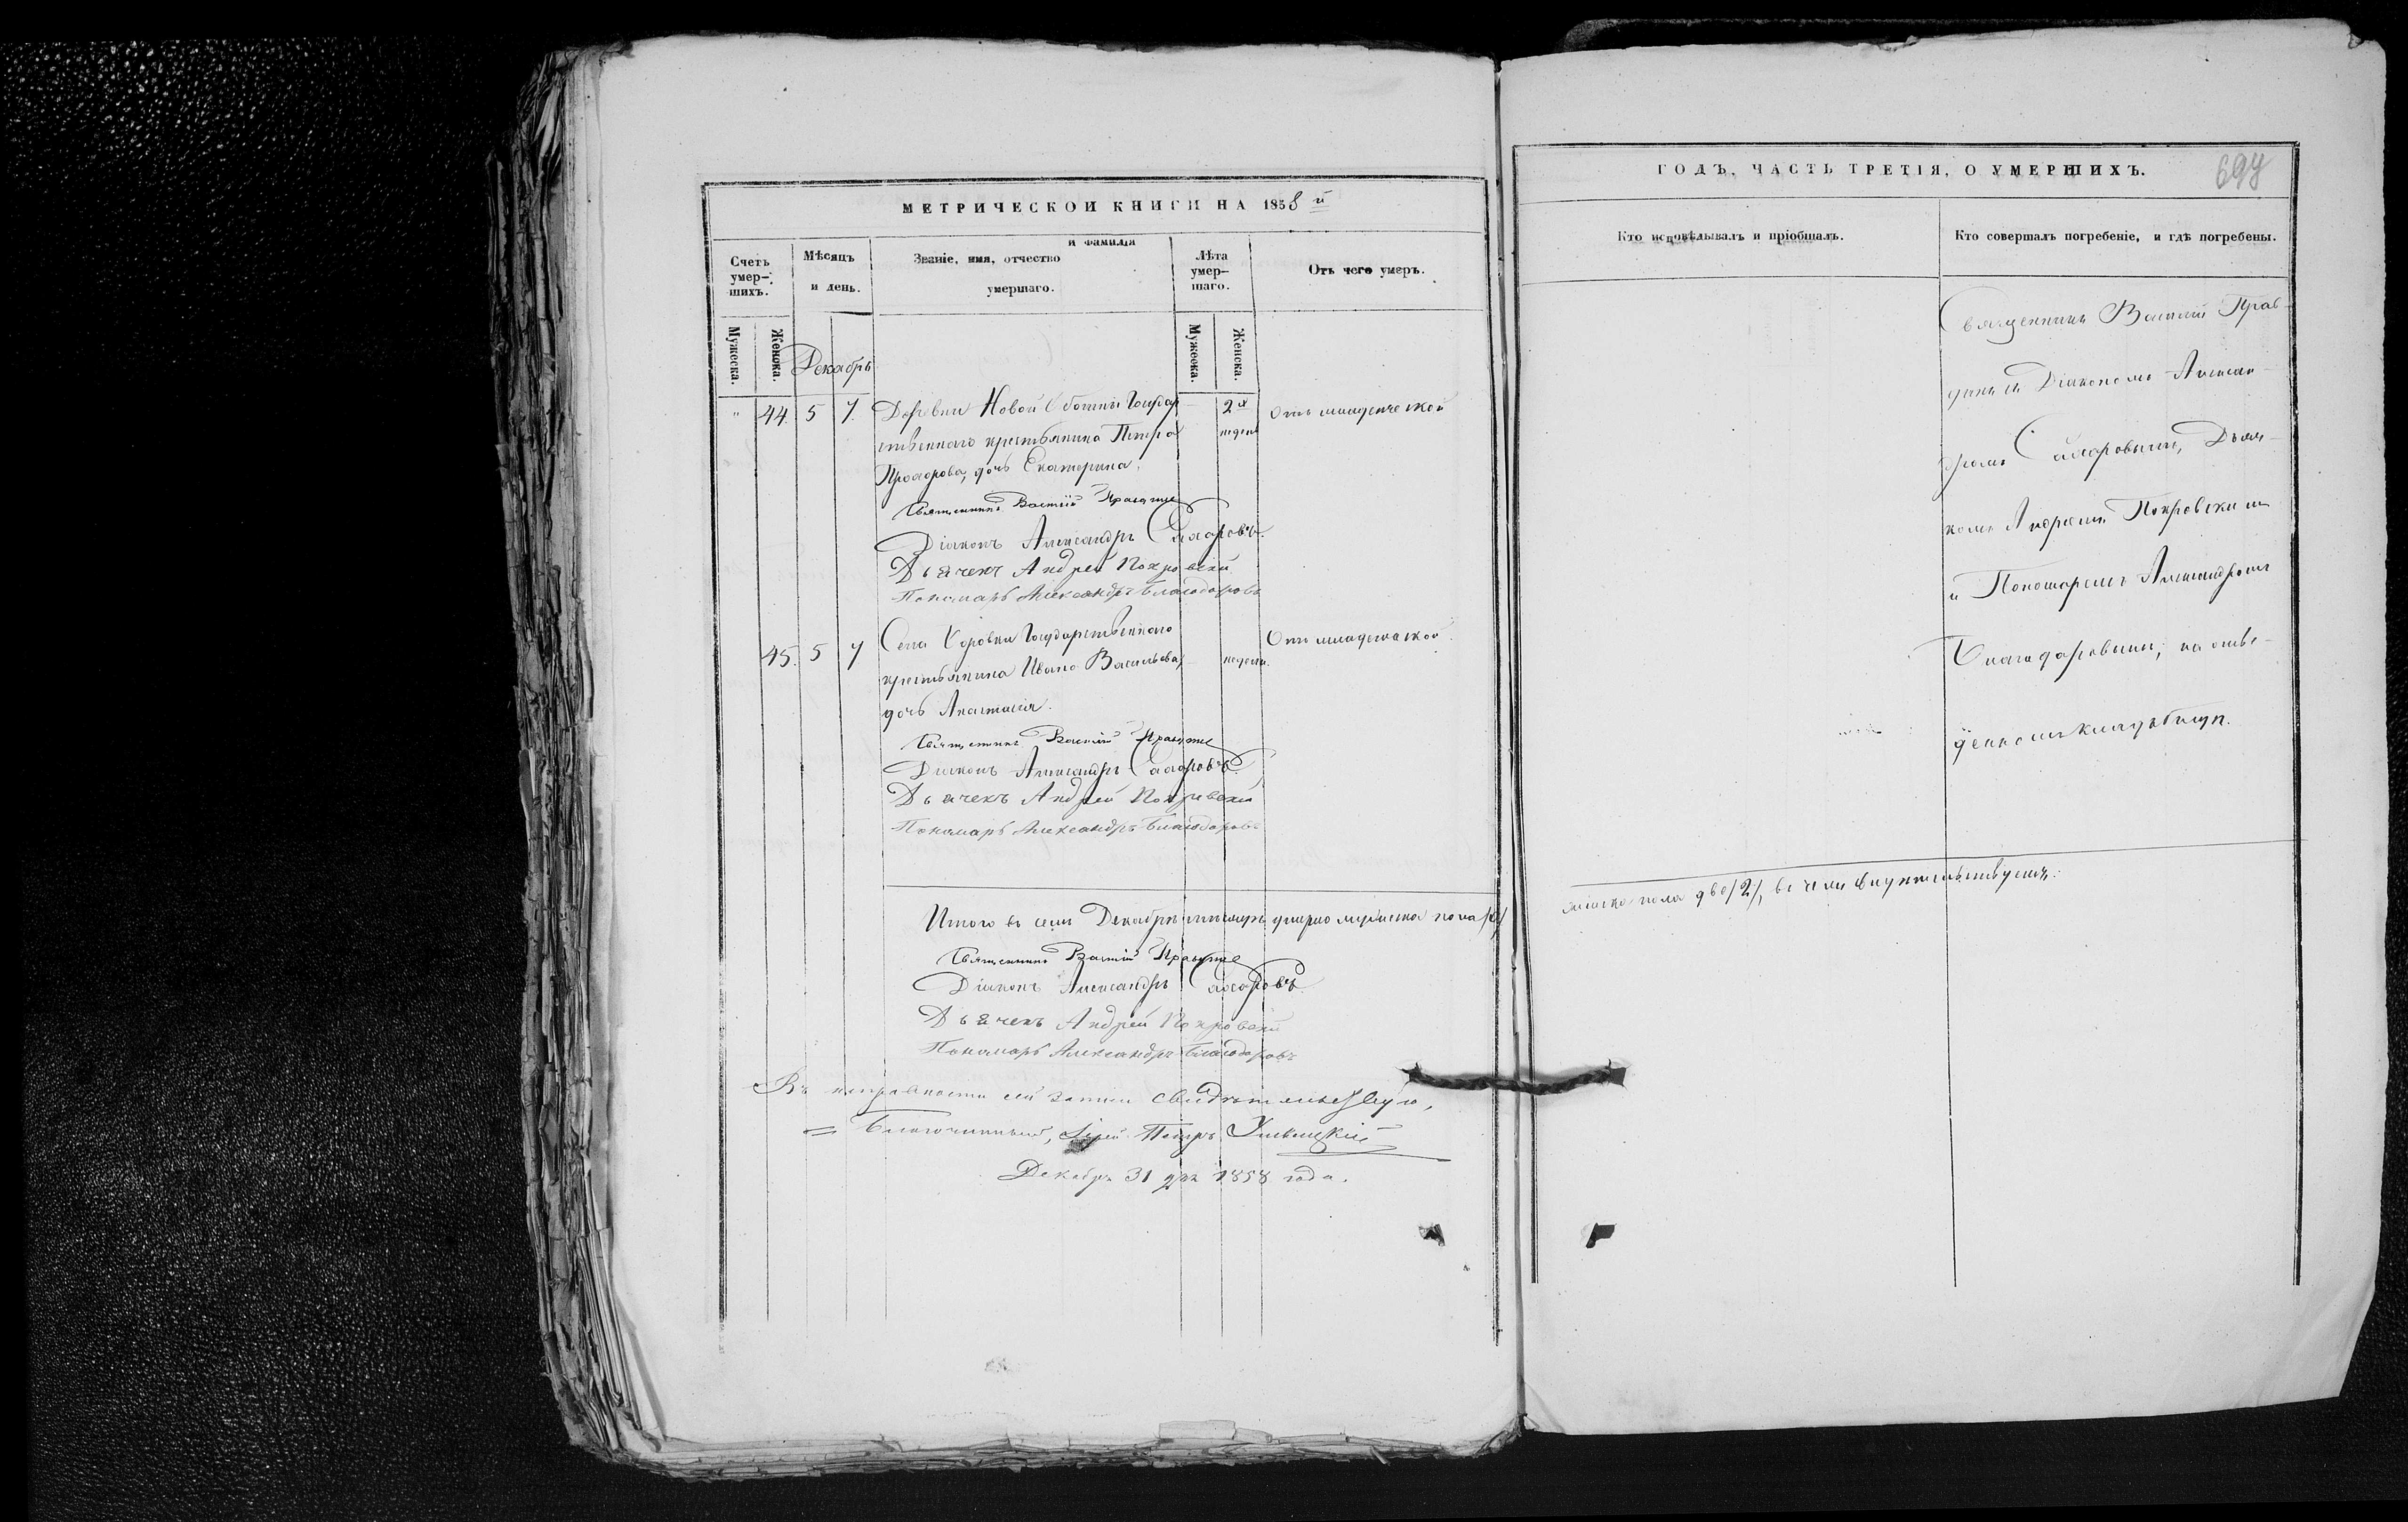 МЕТРИЧЕСКОЙ КНИГИ НА 1858 й
Счетъ умер-шихъ.
Мѣсяцъ и день.
Званіе, имя, отчество и фамилія умершаго.
Лѣта умер-шаго.
Отъ чего умеръ.
Мужеска.
Женска.
Мужеска.
Женска.
Декабрь
" 44. 5 7. Деревни Новой Государ
2х недель
Отъ младенческой
ственнаго крестьянина Петра
Прохорова, дочь Екатерина.
Священникъ Василій
Діаконъ Александръ Сахаровъ.
Дьячекъ Андрей Покровскій
Пономарь Александръ Благодаровъ
45. 5 7 Села Государственнаго
недели.
Отъ младенческой.
крестьянина Ивана Васильева,
дочь Анастасія.
Священникъ Василій
Діаконъ Александръ Сахаровъ.
Дьячекъ Андрей Покровскій
Пономарь Александръ Благодаровъ
Итого въ семъ Декабрѣ мѣсяцѣ умерло мужеска пола
Священникъ Василій
Діаконъ Александръ Сахаровъ
Дьячекъ Андрей Покровскій
Пономарь Александръ Благодаровъ
Въ исправности сей записи свидѣтельствую,
Благочинный, Іерей Петръ
Декабря 31 дня 1858 года.
ГОДЪ, ЧАСТЬ ТРЕТІЯ, О УМЕРШИХЪ.
Кто исповѣдывалъ и пріобщалъ.
Кто совершалъ погребеніе, и гдѣ погребены.
Священникъ Василій
съ Діакономъ Алексан-
дромъ Сахаровымъ, Дьяч-
комъ Андреемъ Покровскимъ
и Пономаремъ Александромъ
Благодаровымъ, на отве-
денномъ кладбищѣ.
женска пола двѣ /2/, въ чемъ и свидѣтельствуемъ.